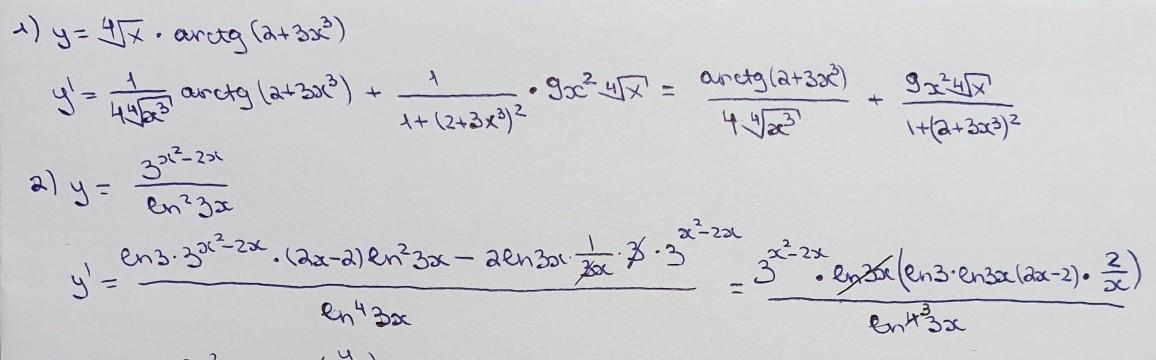 1) y = ∜x · arctg (2+3x³)
y' = 1/(4∜x³) arctg (2+3x³) + 1/(1+(2+3x³)²) · 9x² ∜x = arctg(2+3x³)/(4∜x³) + 9x²∜x/(1+(2+3x³)²)
2) y = 3^(x²-2x)/ln²3x
y' = (ln3·3^(x²-2x)·(2x-2)ln²3x - 2ln3x·1/(3x)·3·3^(x²-2x))/ln⁴3x = 3^(x²-2x)·ln3x(ln3·ln3x(2x-2)·2/x)/ln⁴ ³3x